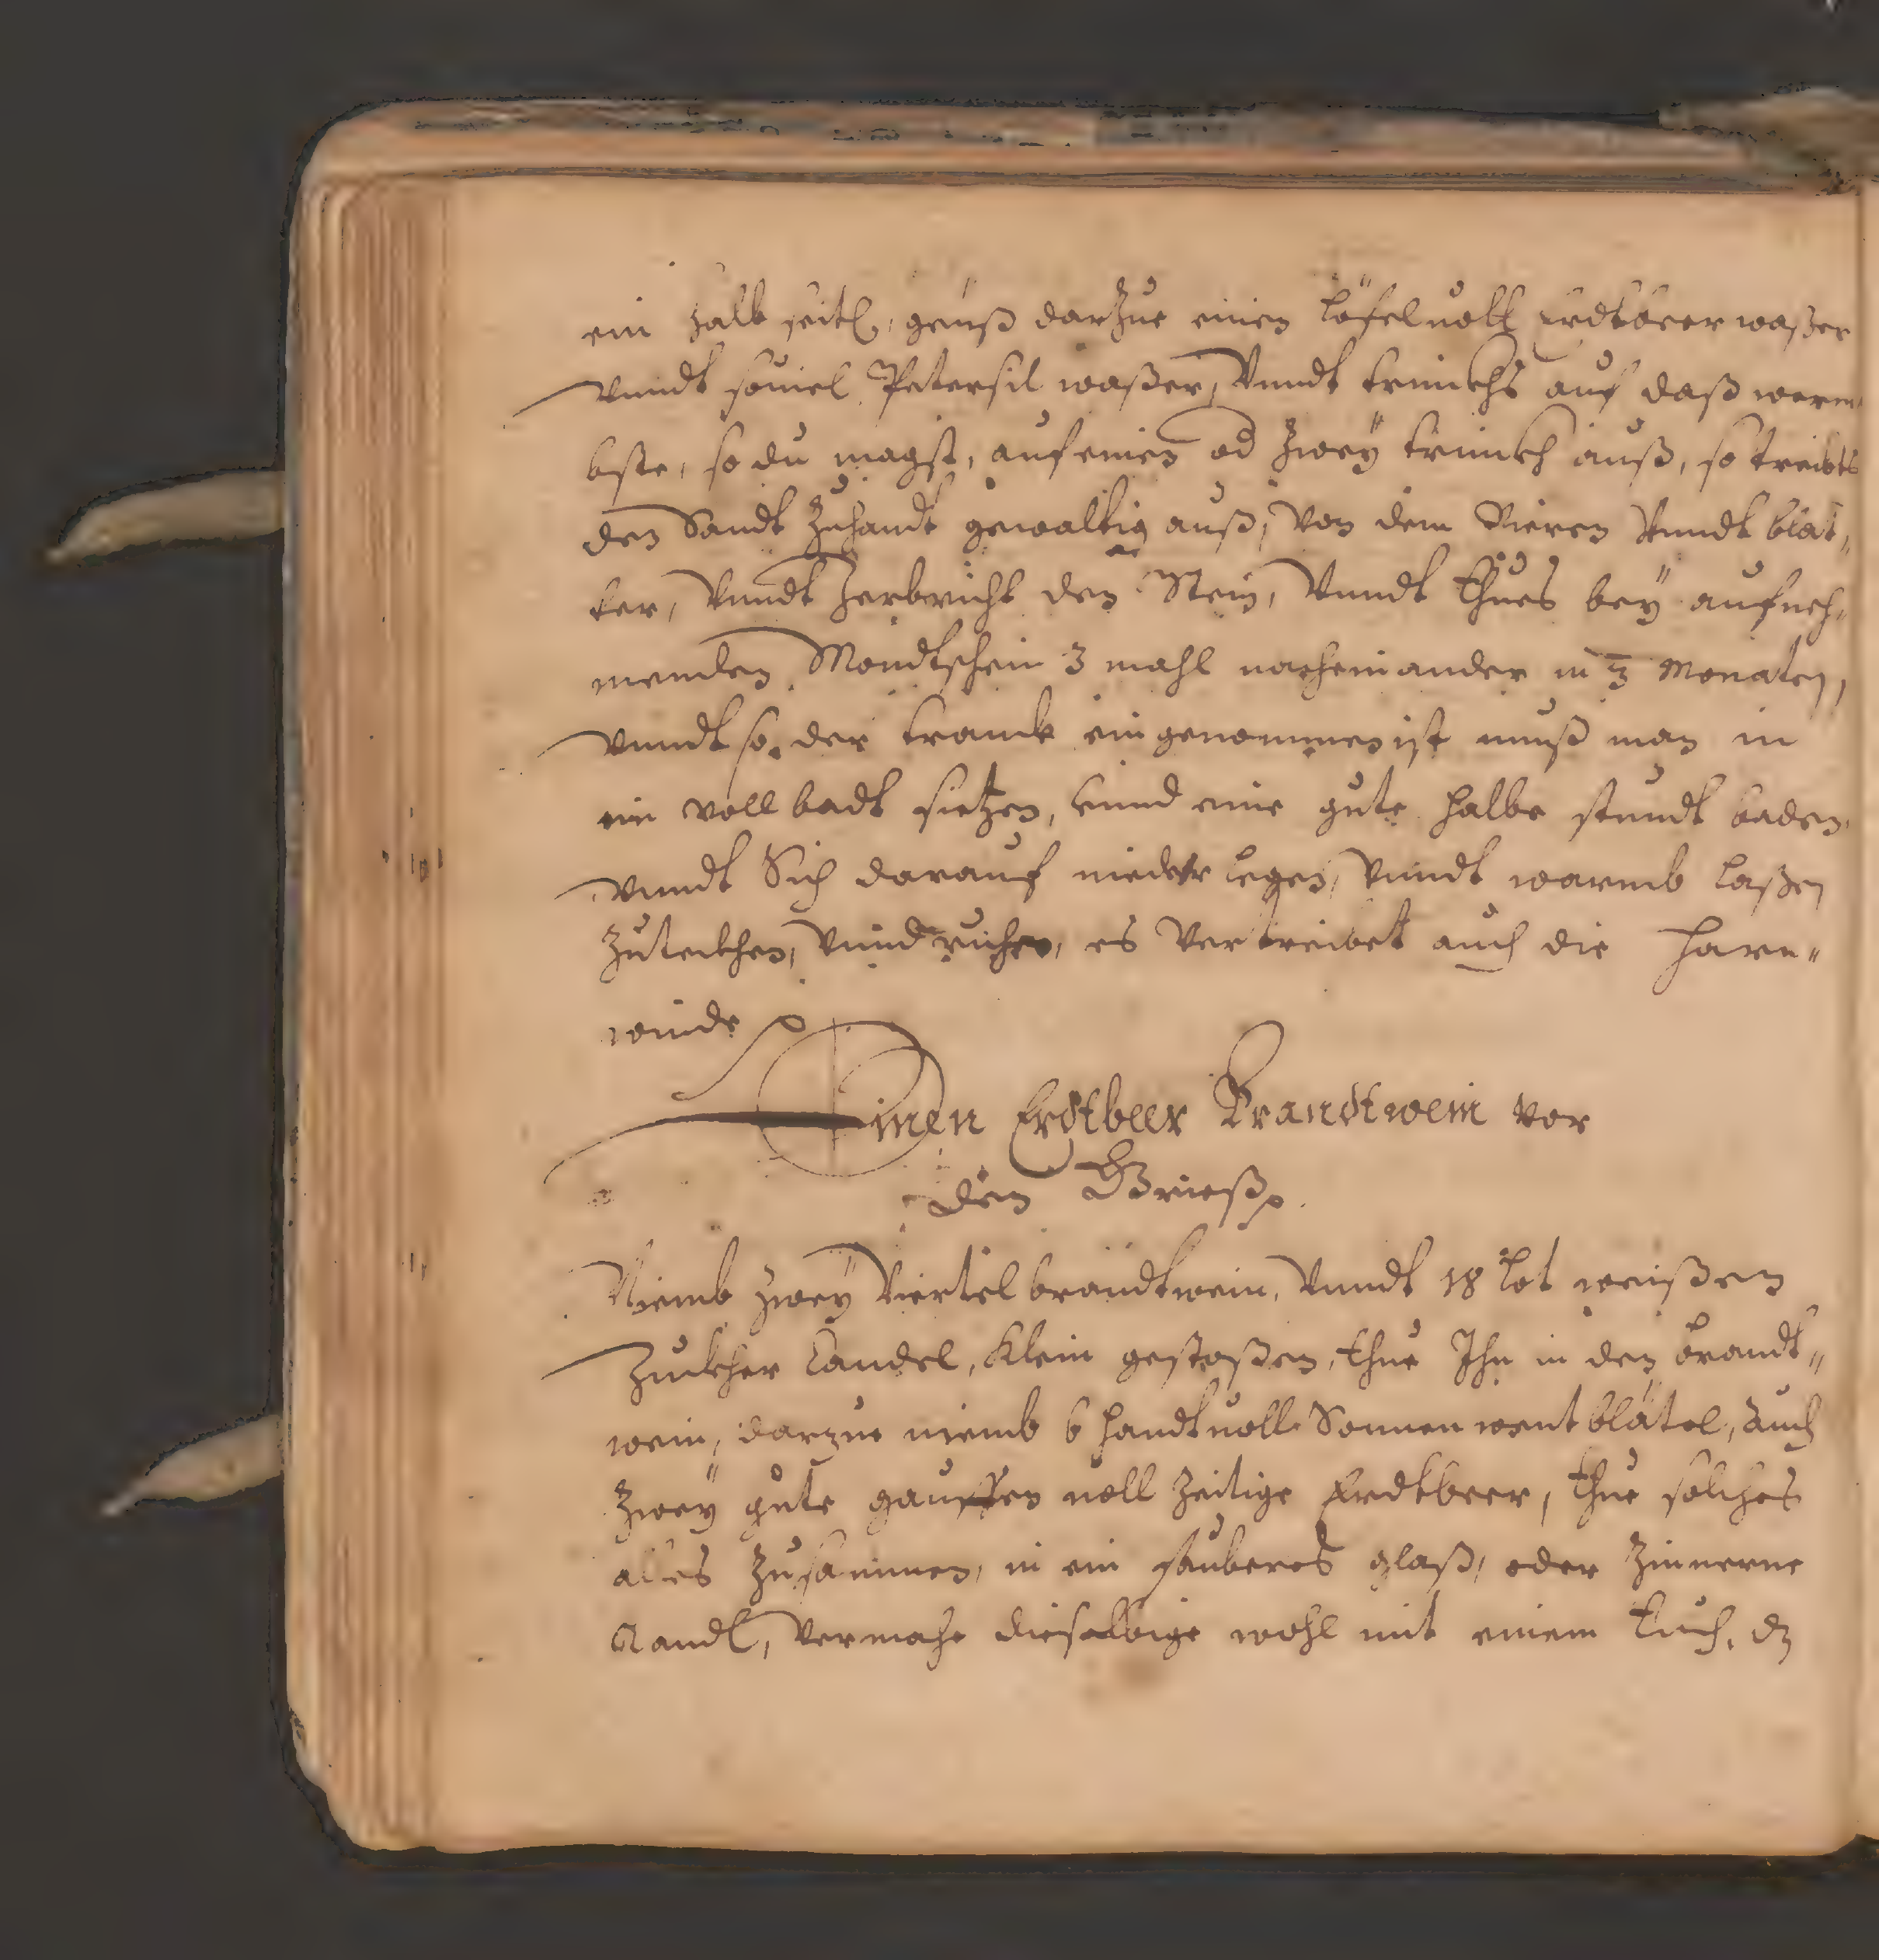 ein halb seitl, geuß darZue einen löfel voll Erdtbeer waßer
Vnndt souiel Petersil waßer, Vnndt trinckhs auf daß werm„
bste, so du magst, auf einen od Zwey trunckh auß, so treibts
den Sandt Zuhandt gewaltig auß, Von dem Nieren Vnndt blat„
ter, Vnndt Zerbricht den Stein, Vnndt thues bey aufneh„
menden Mondtschein 3 mahl nacheinander in 3 Monaten,
Vnndt so der tranck eingenommen ist muß man in
ein voll badt sietzen, Vnnd eine gute halbe stundt baden
Vnndt Sich darauf nieder legen, Vnndt warmb laßen
Zuteckhen, Vnnd ruhen, es Vertreibet auch die Harn„
winde
Einen Erdtbeer Brandtwein vor
den Grieß
Niemb Zwey Viertel brandtwein, Vnndt 18 lot weißen
Zuckher Candel, Klein gestoßen, thue Ihn in den brandt„
wein, darzue niemb 6 handt voll Sonnen went blätel, auch
Zwey gute gauffen voll Zeitige Erdtbeer, thue solches
alles Zusammen, in ein sauberes glaß, oder Zinnerne
Kandl, Vermache dieselbige wohl mit einem tuch, dz